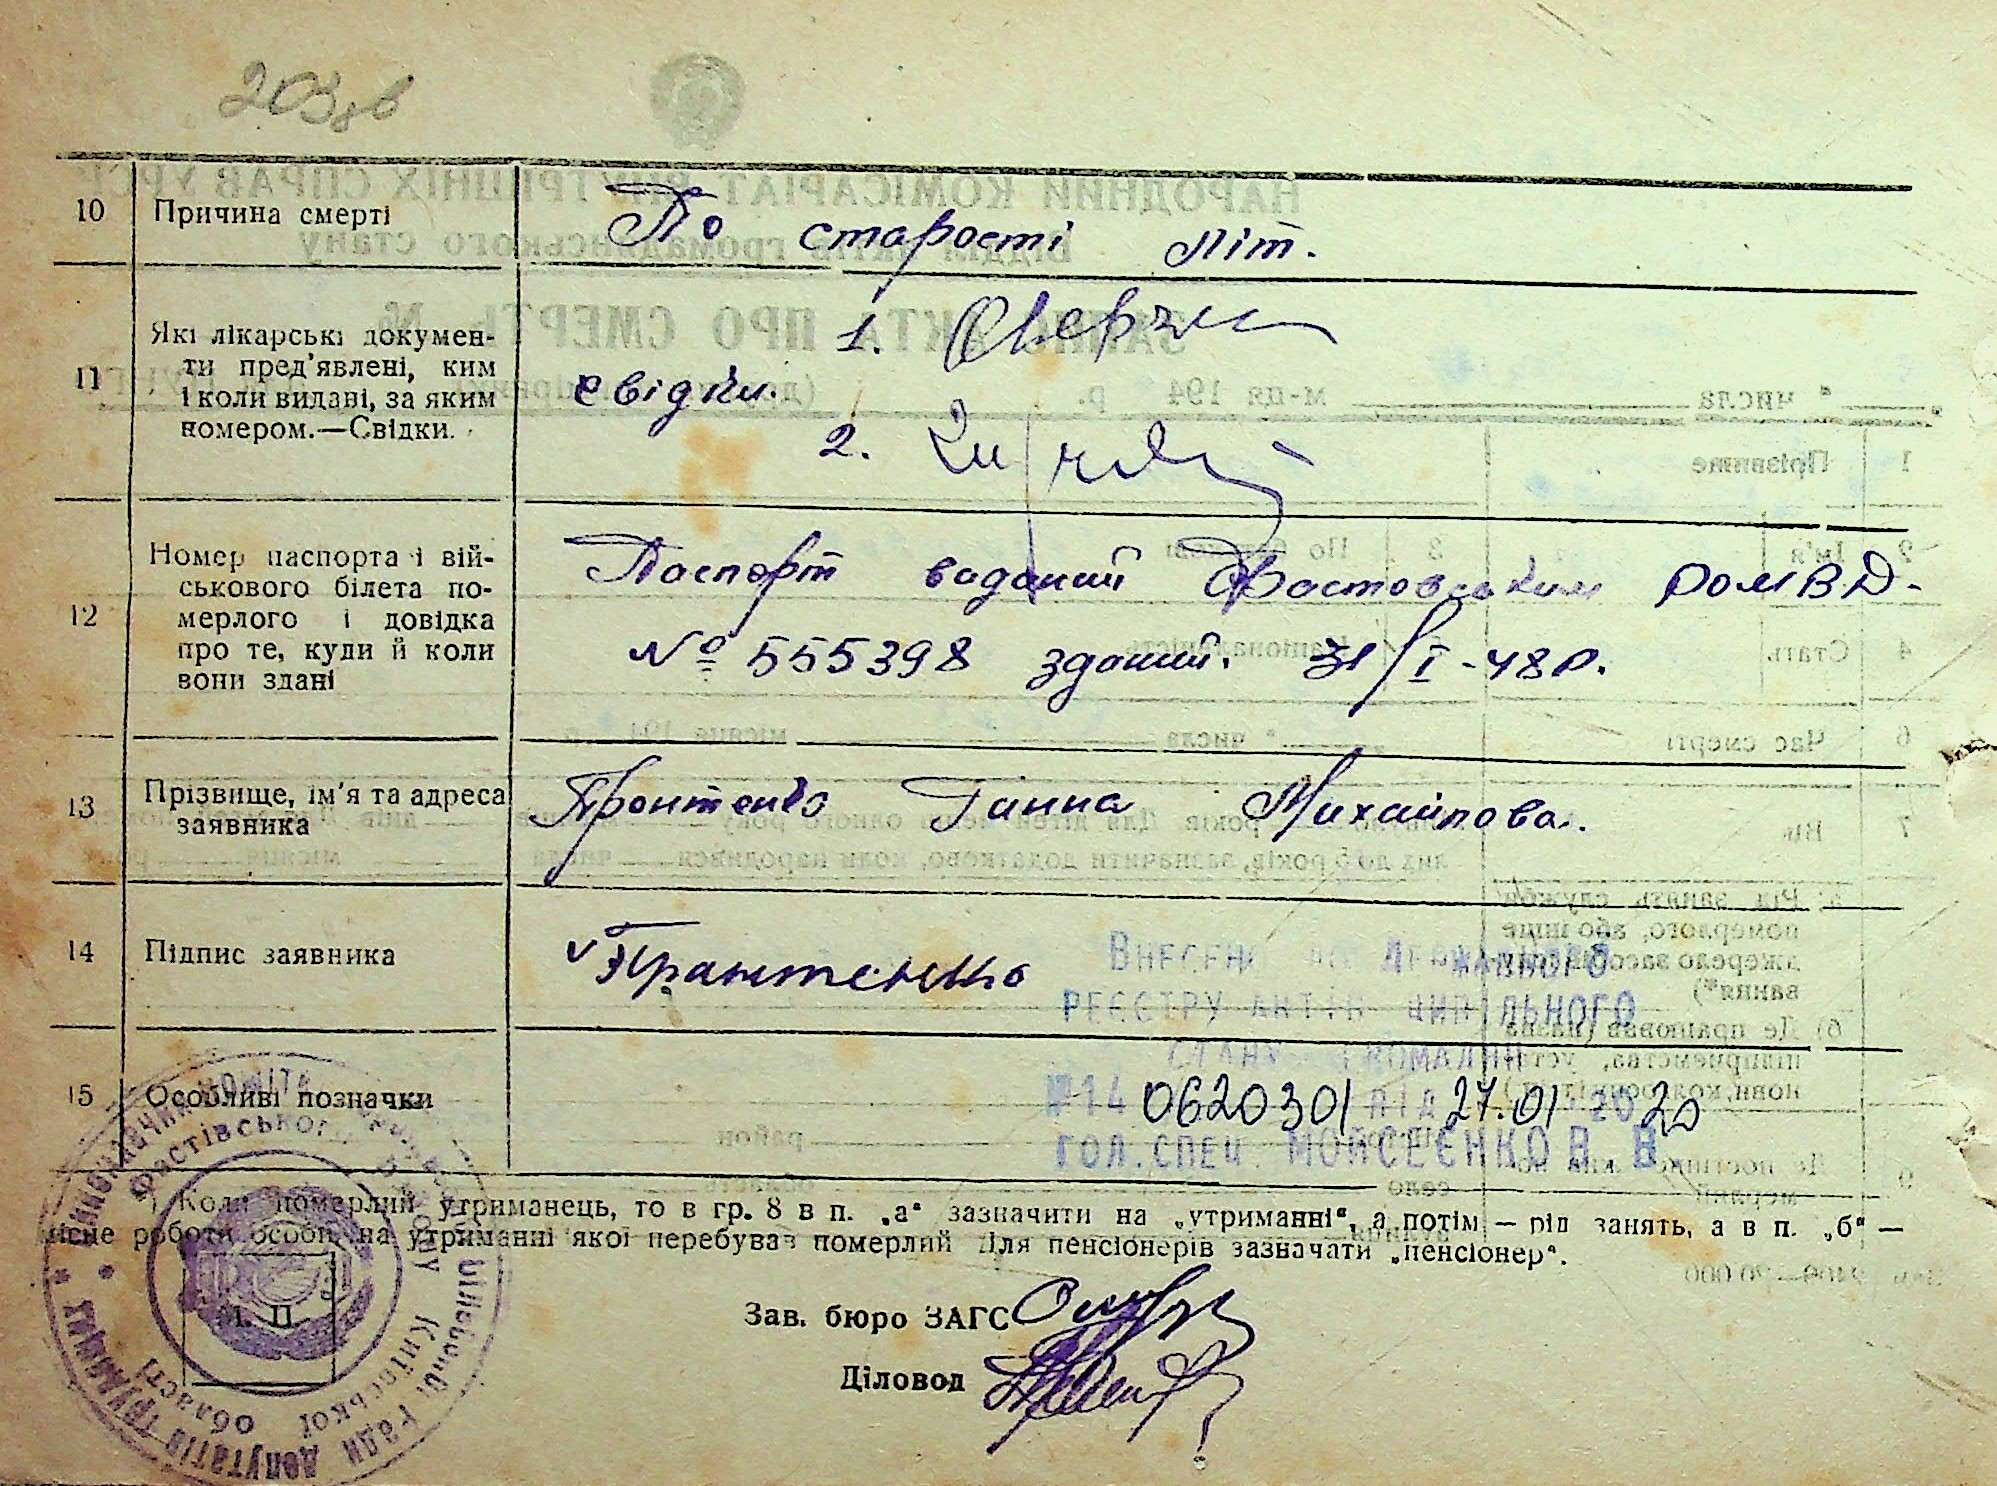 10 Причина смерті По старості літ.
11 Які лікарські докумен-
ти пред'явлені, ким
і коли видані, за яким
номером.—Свідки.
1.
свідки.
2.
12 Номер паспорта і вій-
ськового білета по-
мерлого і довідка
про те, куди й коли
вони здані
Паспорт виданий Фастовським РОМВД-
№ 555398 зданий. 31/I-48р.
13 Прізвище, ім'я та адреса
заявника
Пронтенко Ганна Михайлова.
14 Підпис заявника Прантенко
Внесено до Державного
реєстру актів цивільного
стану громадян
15 Особливі позначки
№14 0620301 від 27.01 2020
гол. спец. Мойсеєнко В. В.
Коли померлий утриманець, то в гр. 8 в п. „а“ зазначити на „утриманні“, а потім — рід занять, а в п. „б“ —
місце роботи особи, на утриманні якої перебував померлий Для пенсіонерів зазначати „пенсіонер“.
М. П.
Зав. бюро ЗАГС
Діловод
Фастівського району Київської області